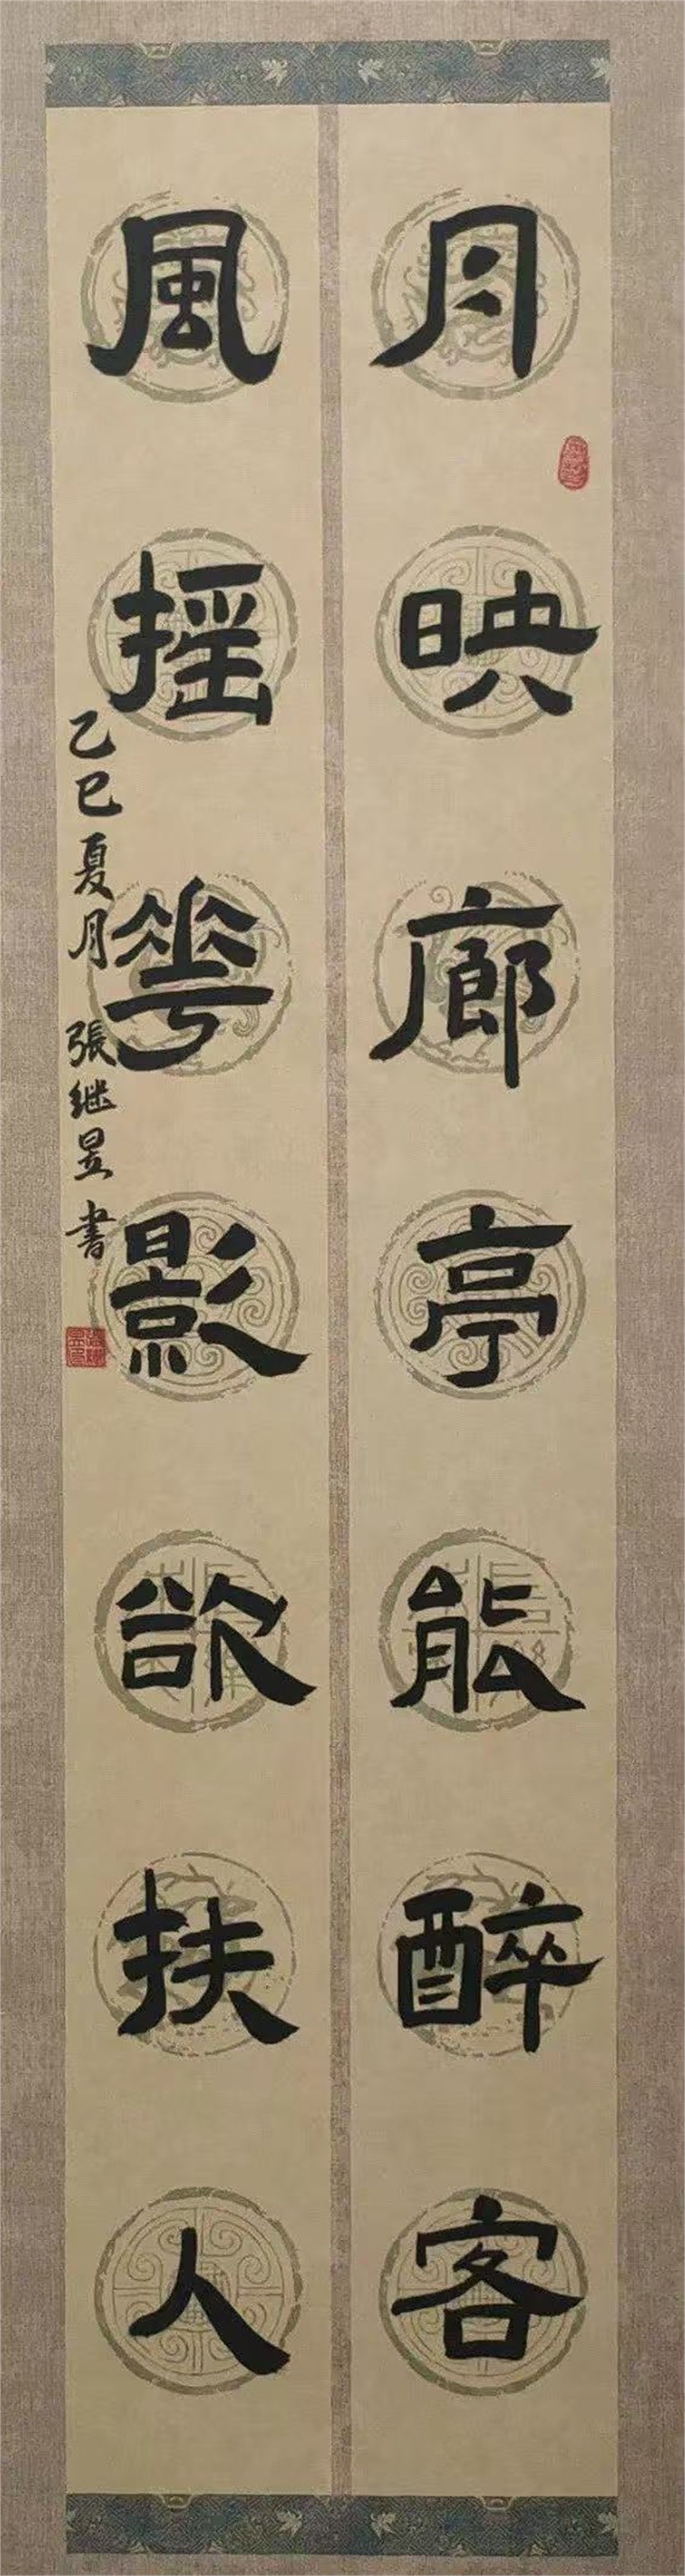 月映廊亭能醉客
風摇花影欲扶人
乙巳夏月 張继昱 書